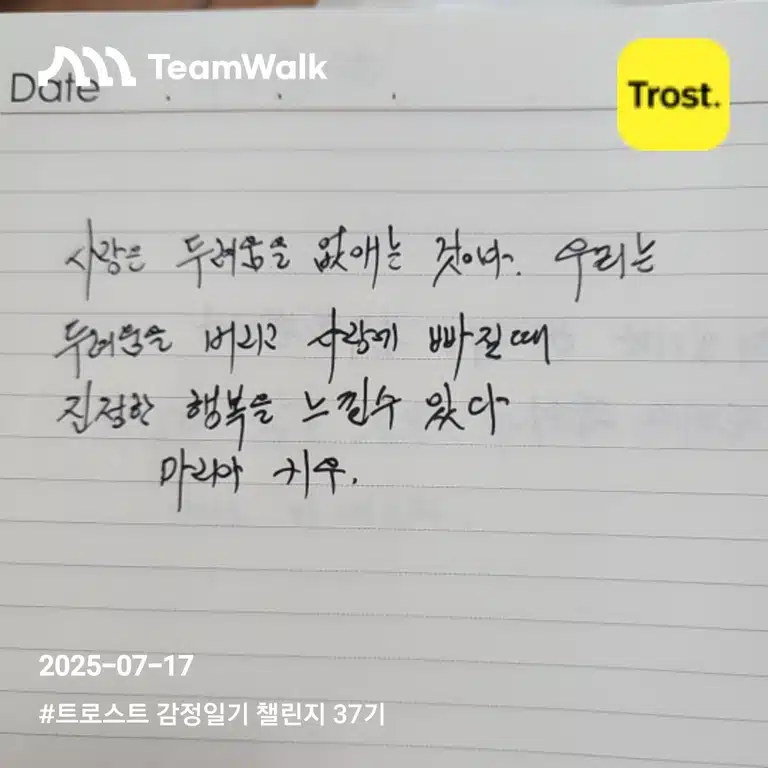 TeamWalk
Trost.
Date
사랑은 두려움을 없애는 것이다. 우리는
두려움을 버리고 사랑에 빠질때
진정한 행복을 느낄수 있다
마리아 키우.
2025-07-17
#트로스트 감정일기 챌린지 37기